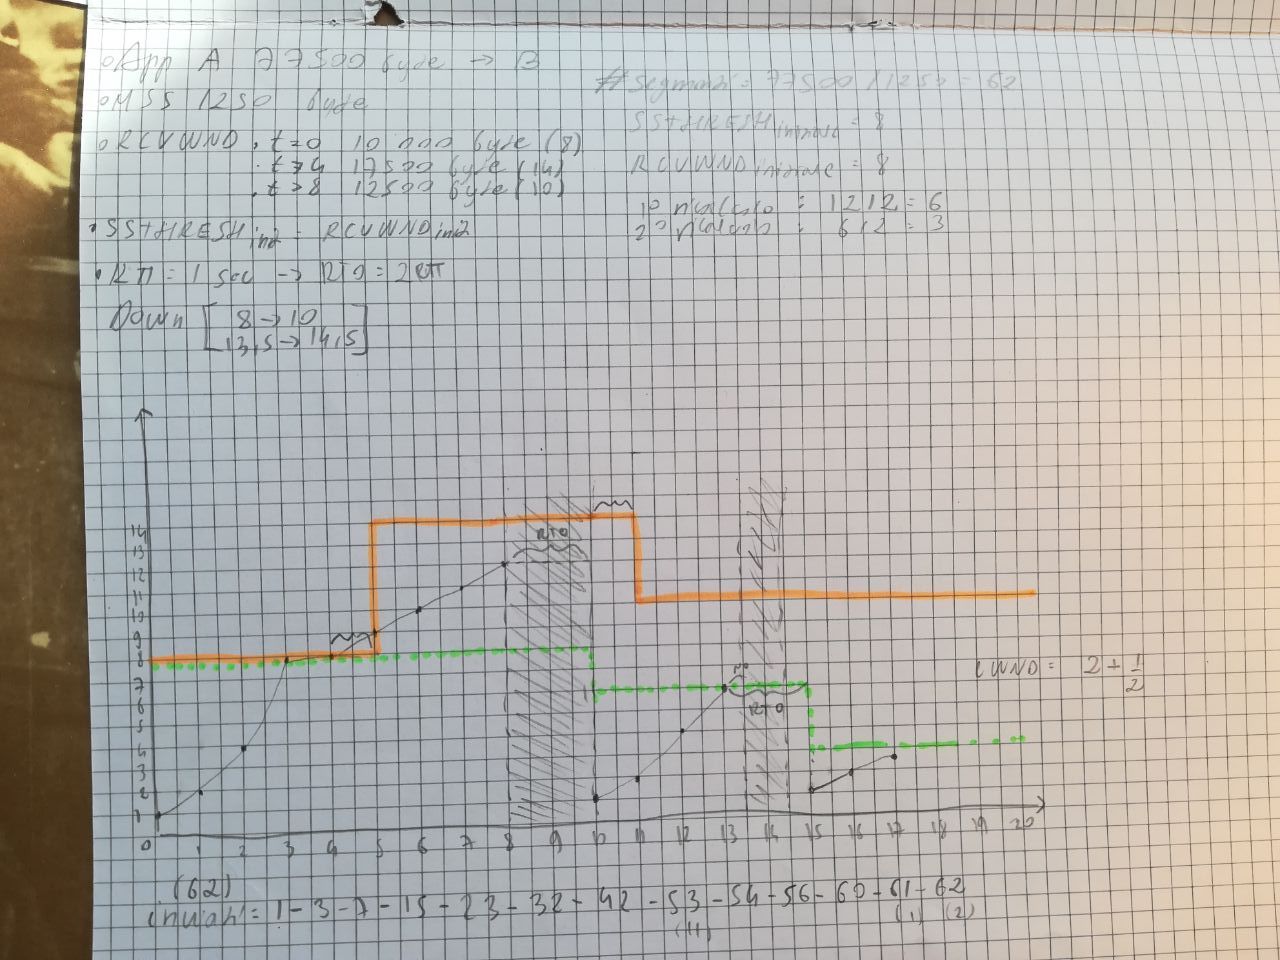 App A 77500 byte → B
MSS 1250 byte
RCVWND . t=0 10 000 byte (8)
. t>4 17500 byte (14)
. t>8 12500 byte (10)
SSTHRESH = RCVWND
RTT = 1 sec → RTO = 2RTT
Down [ 8 → 10
13,5 → 14,5 ]
# segmenti = 77500/1250 = 62
SSTHRESH iniziale = 8
RCVWND iniziale = 8
1° ricalcolo : 12/2 = 6
2° ricalcolo : 6/2 = 3
14
13
12
11
10
9
8
7
6
5
4
3
2
1
RTO
RTO
CWND = 2 + 1/2
0 1 2 3 4 5 6 7 8 9 10 11 12 13 14 15 16 17 18 19 20
(62)
inviati = 1 - 3 - 7 - 15 - 23 - 32 - 42 - 53 - 54 - 56 - 60 - 61 - 62
(11) (1) (2)